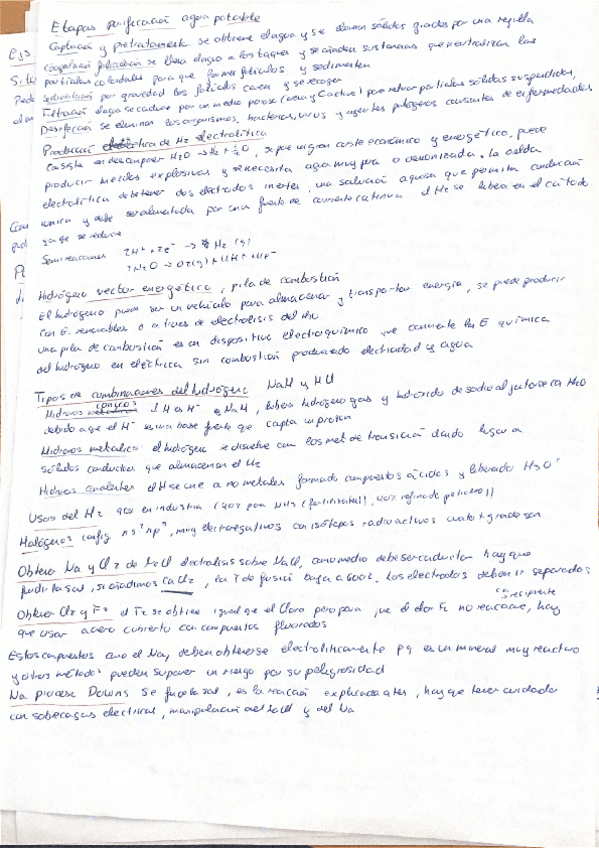 Etapas purificación agua potable
Captación y pretratamiento se obtiene el agua y se eliminan sólidos grandes por una rejilla
Coagulación floculación se lleva el agua a los tanques y se añaden sustancias que neutralizan las
partículas coloidales para que formen flóculos y sedimenten
Sedimentación por gravedad los flóculos caen y se recogen
Filtración el agua se conduce por un medio poroso (arena y ) para retirar partículas sólidas suspendidas,
Desinfección se eliminan los organismos, bacterias, virus y agentes patógenos causantes de enfermedades
Producción de H2 electrolítica
Consiste en descomponer H2O → H2 + ½O2 , supone un gran coste económico y energético, puede
producir mezclas explosivas y se necesita agua muy pura o desionizada. La celda
electrolítica debe tener dos electrodos inertes, una salvación aquosa que permita conducción
iónica y debe ser alimentada por una fuente de corriente continua el H2 se libera en el cátodo
ya que se reduce
Semirreacciones 2H+ + 2e- → H2 (g)
2H2O → O2(g) + 4H+ + 4e-
Hidrógeno vector energético, pila de combustión
El hidrógeno puede ser un vehículo para almacenar y transportar energía, se puede producir
con E. renovables o a traves de electrolisis del H2O
una pila de combustión es un dispositivo electroquímico que convierte la E química
del hidrógeno en eléctrica sin combustión produciendo electricidad y agua
Tipos de combinaciones del hidrógeno NaH y HCl
Hidruros iónicos el H es H- NaH , libera hidrógeno gas y hidróxido de sodio al juntarse con H2O
debido a que el H- es una base fuerte que capta un proton
Hidruros metalicos el hidrógeno se disuelve con los met de transición dando lugar a
sólidos conductores que almacenan el H2
Hidruros covalentes el H se une a no metales formando compuestos ácidos y liberando H3O+
Usos del H2 gas en industria (40% para NH3 (fertilizantes), 40% refinado petróleo))
Halógenos config ns2np5, muy electronegativos con isótopos radioactivos
Obtener Na y Cl2 de NaCl electrolisis sobre NaCl, como medio debe ser conductor hay que
fundir la sal, si añadimos CaCl2, la T de fusión baja a 600ºC. Los electrodos deben ir separados
Obtener Cl2 y F2 el F2 se obtiene igual que el Cloro pero para que el F2 no reaccione, hay
que usar acero cubierto con compuestos fluorados
Estos compuestos como el Na, deben obtenerse electroliticamente pq es un mineral muy reactivo
y otros métodos pueden suponer un riesgo por su peligrosidad
Na proceso Downs se funde la sal, es la reacción explicada antes, hay que tener cuidado
con sobrecargas electricas, manipulación del NaCl y del Na